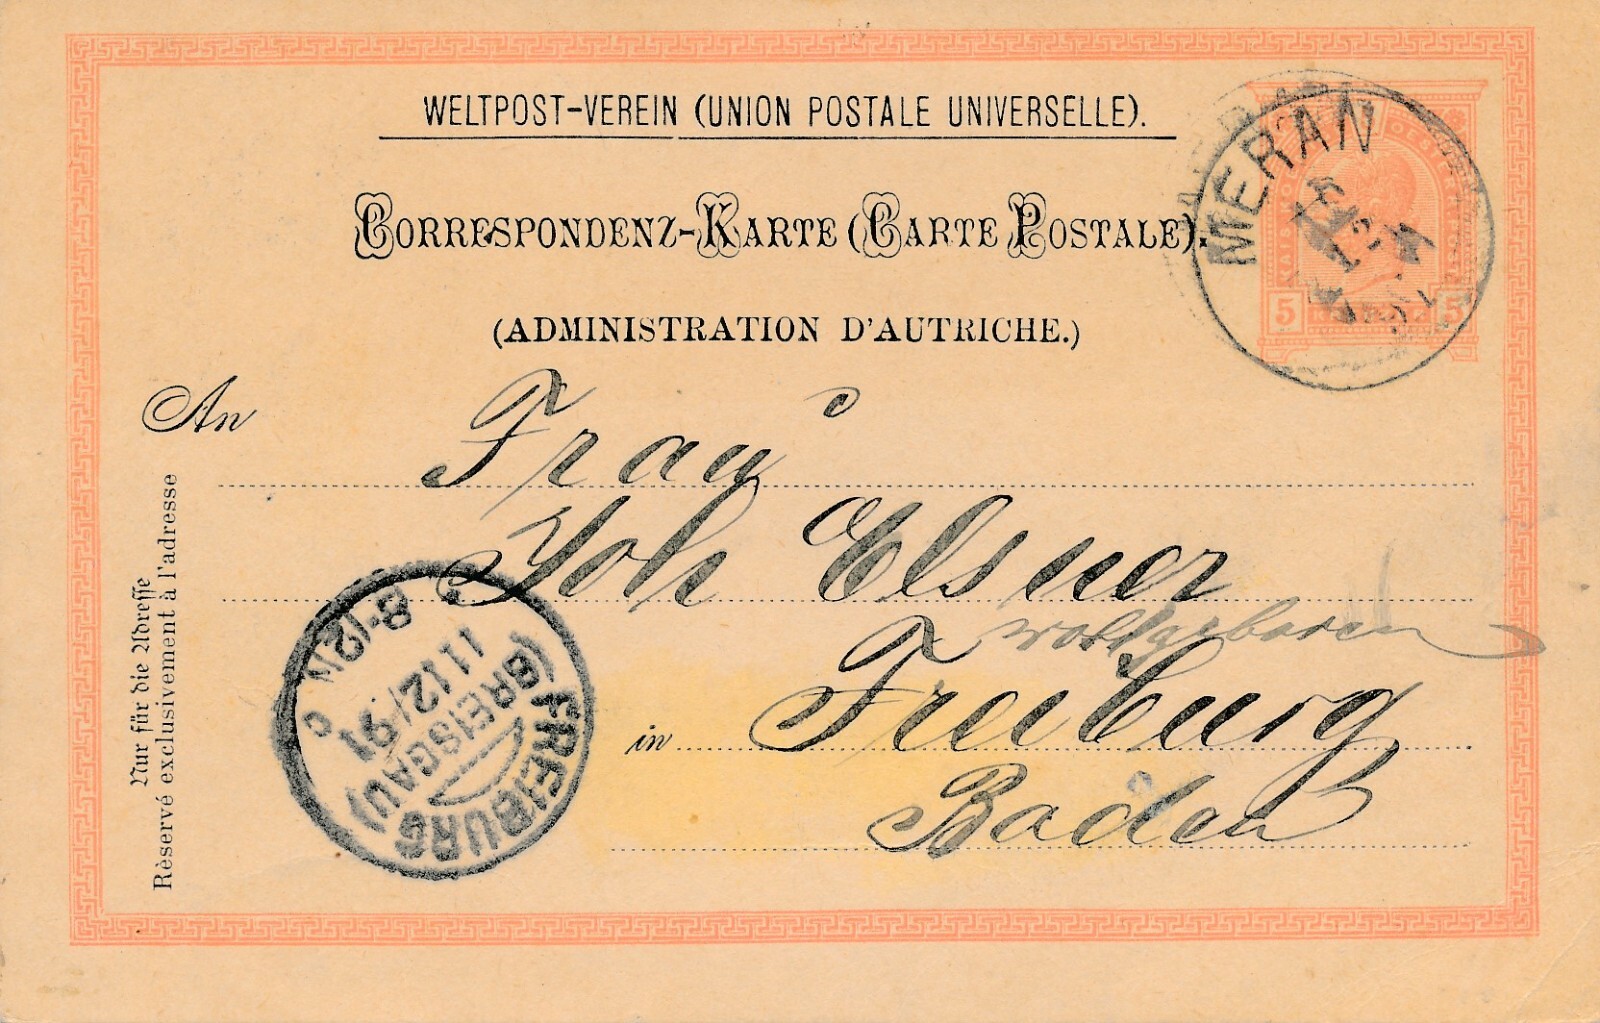 WELTPOST-VEREIN (UNION POSTALE UNIVERSELLE).
CORRESPONDENZ-KARTE (CARTE POSTALE).
(ADMINISTRATION D'AUTRICHE.)
MERAN
5 5
An
Frau
Joh Elsner
wohlgeboren
in Freiburg
Baden
Nur für die Adresse
Rèservé exclusivement à l'adresse
FREIBURG
(BREISGAU)
11 12/91
8-12N
c